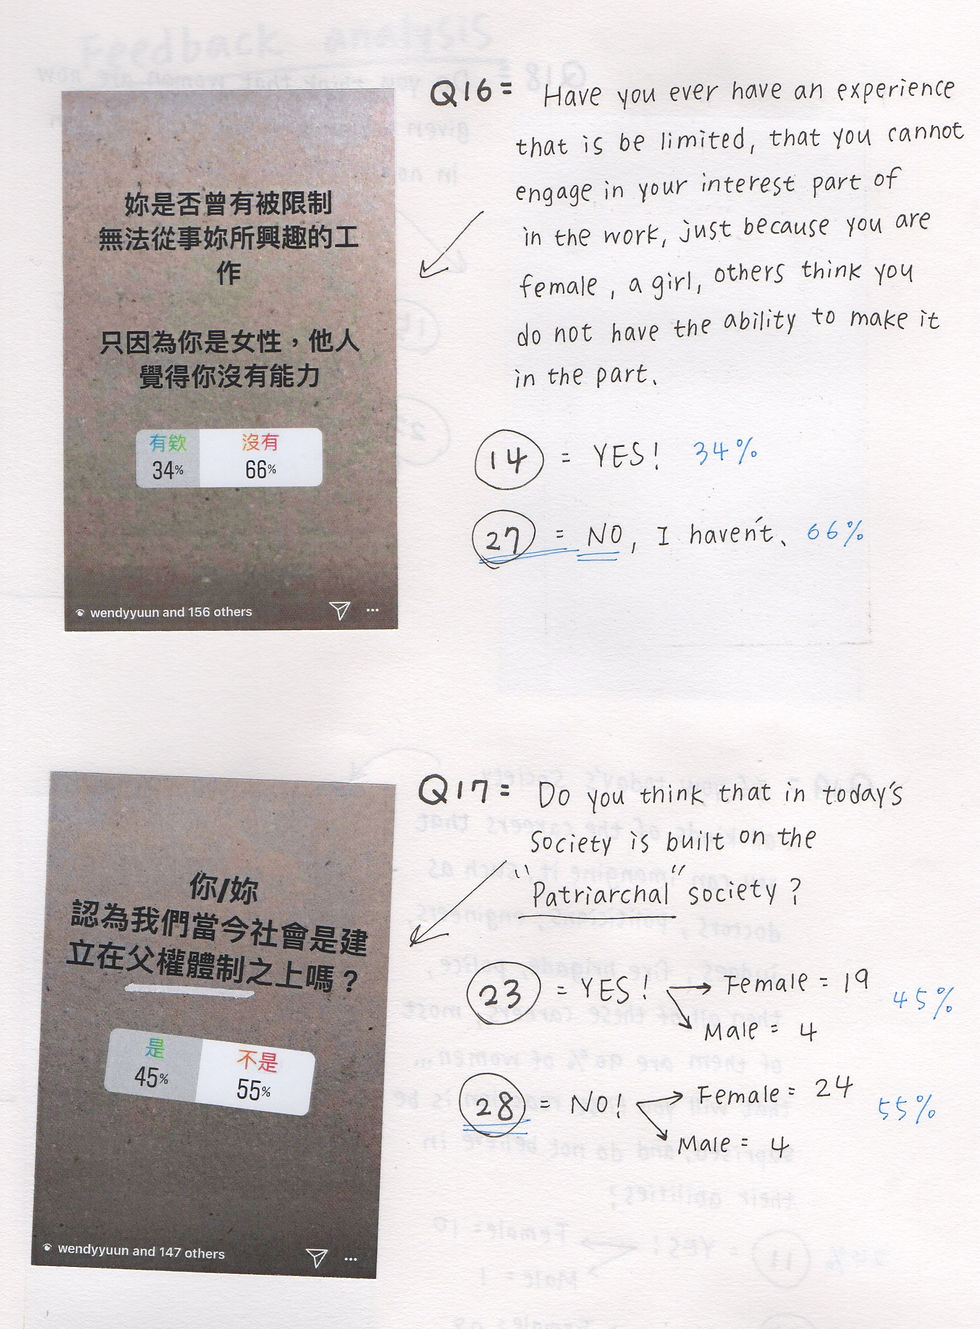 Feedback analysis
Q16= Have you ever have an experience
that is be limited, that you cannot
engage in your interest part of
in the work, just because you are
female, a girl, others think you
do not have the ability to make it
in the part.
14 = YES! 34%
27 = NO, I haven't、 66%
妳是否曾有被限制
無法從事妳所興趣的工
作
只因為你是女性，他人
覺得你沒有能力
有欸 沒有
34% 66%
wendyyuun and 156 others
Q17= Do you think that in today's
Society is built on the
"Patriarchal" society?
23 = YES! → Female = 19 45%
Male = 4
28 = NO → Female = 24 55%
Male = 4
你/妳
認為我們當今社會是建
立在父權體制之上嗎？
是 不是
45% 55%
wendyyuun and 147 others